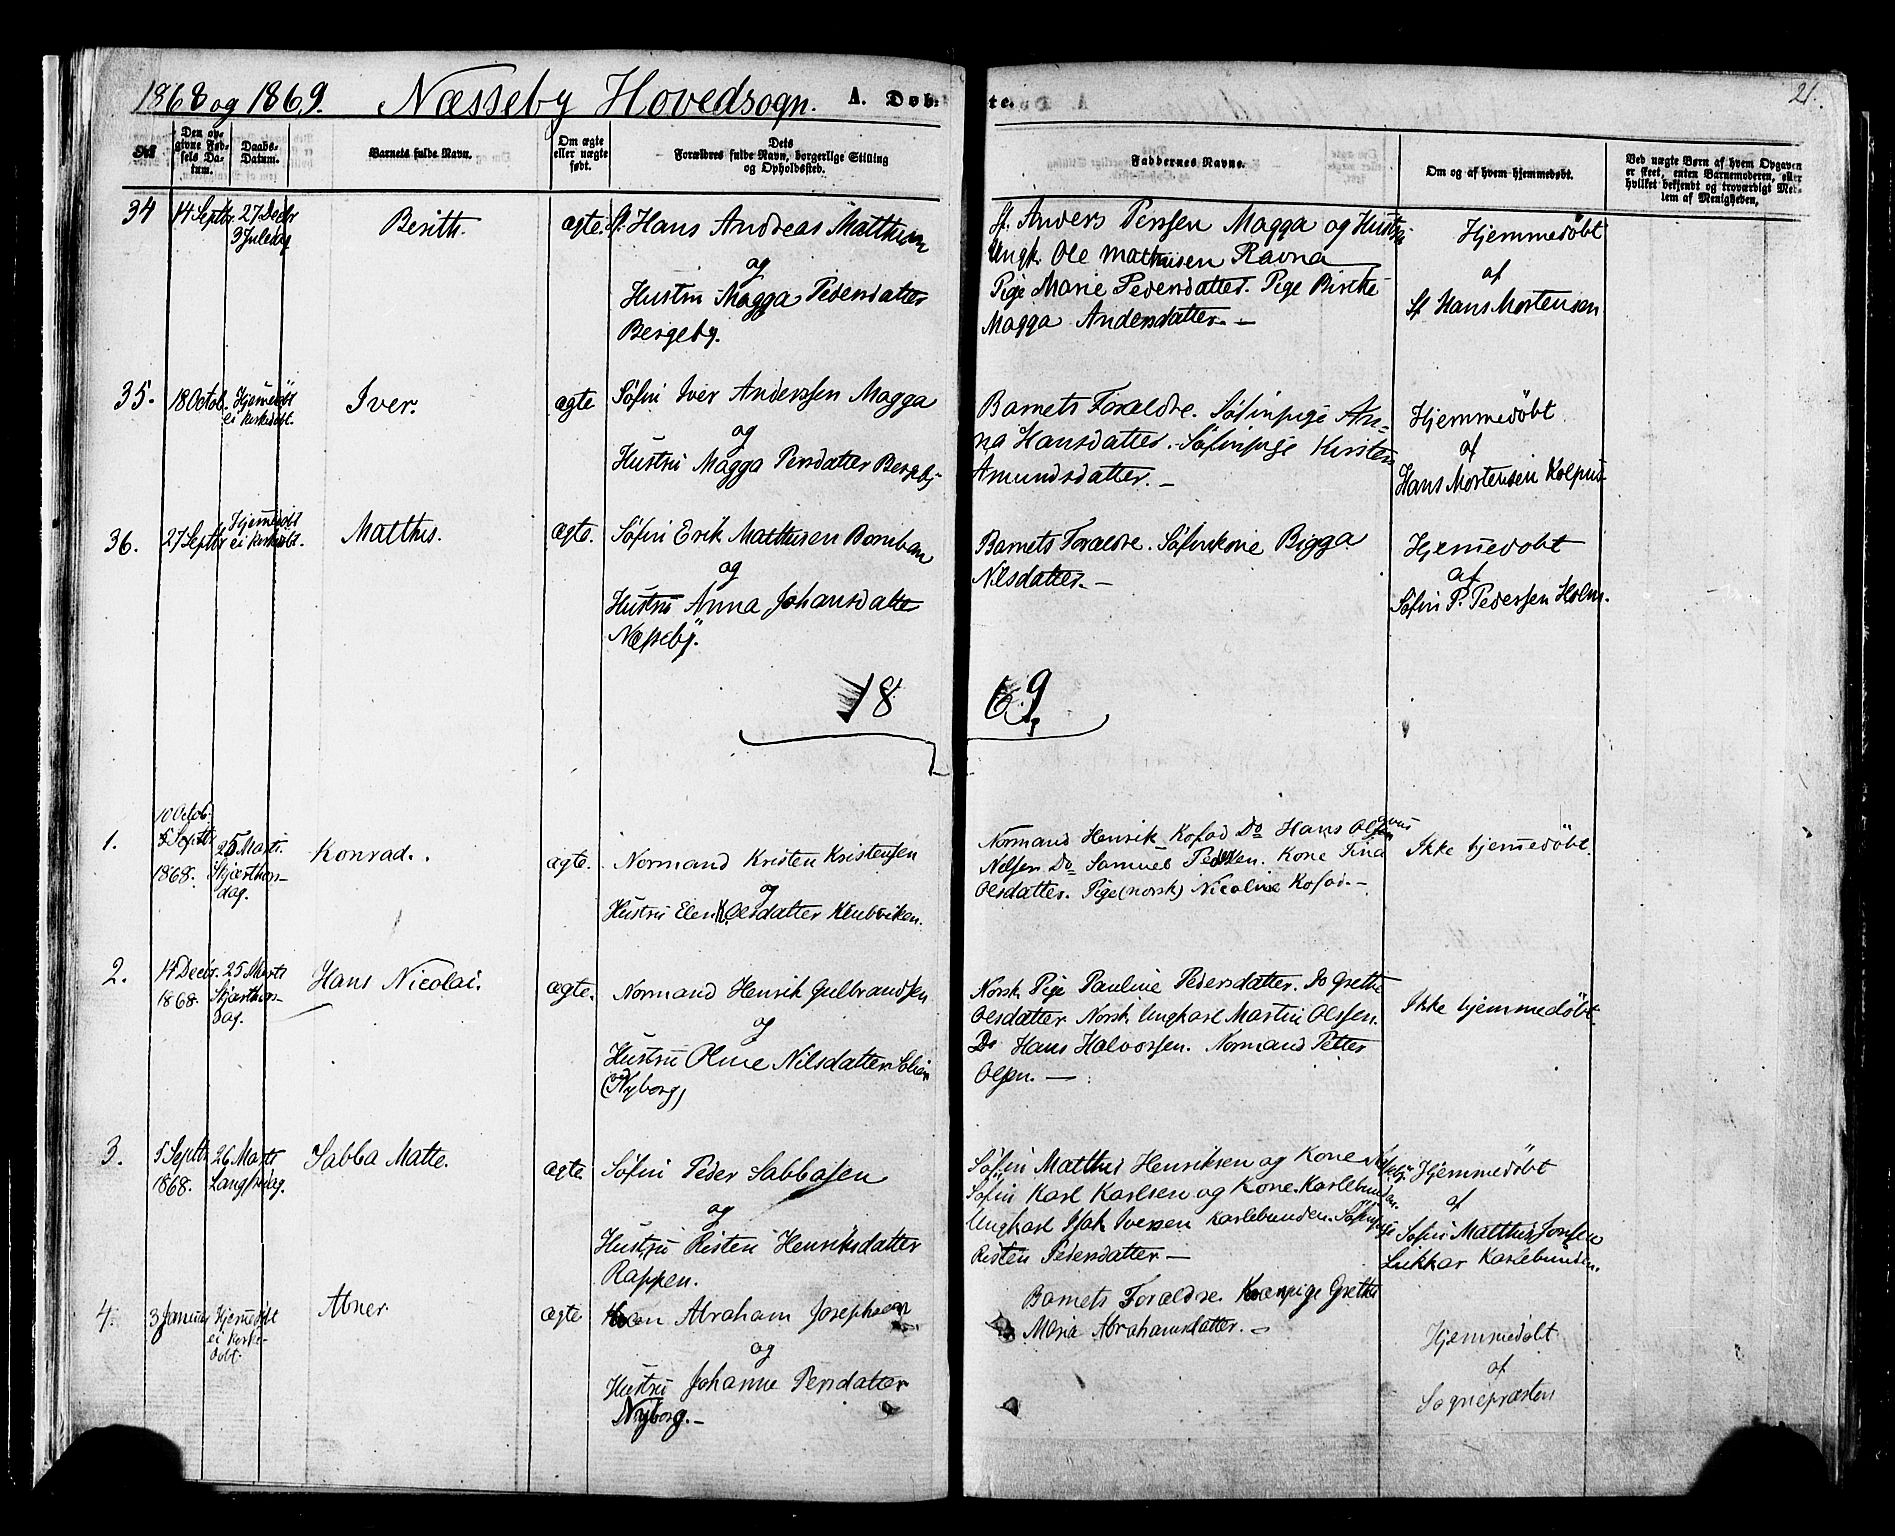 1868 og 1869. Næsseby Hovedsogn. A. Døbte.
21.
No
Den opgivne Fødsels Datum.
Daabs-Datum.
Barnets fulde Navn.
Om ægte eller uægte født.
Dets Forældres fulde Navn, borgerlige Stilling og Opholdssted.
Faddernes Navne.
Om og af hvem hjemmedøbt.
Ved uægte Børn af hvem Opgaven er skeet, enten Barnemoderen, eller hvilket bekjendt og troværdigt Medlem af Menigheden.
34
14 Septbr.
27 Decbr
3 Juledag
Berith.
ægte.
sf. Hans Andreas Matthisen
og
Hustru Magga Pedersdatter
Bergeby.
sf. Anders Perssen Magga og Hustru
Ungk. Ole Mathisen Ravna
Pige Marie Pedersdatter. Pige Birthe
Magga Andersdatter. –
Hjemmedöbt
af
sf Hans Mortensen
35.
18 Octob.
Hjemedöbt
ei kirkedöbt.
Iver.
ægte
Söfin Iver Anderssen Magga
og
Hustru Magga Persdatter Bergeby
Barnets Forældre. Söfinpige An-
na Hansdatter. Söfinpige Kirsten
Amundsdatter. –
Hjemmedöbt
af
Hans Mortensen Kolpus
36.
27 Septbr
Hjemedöbt
ei kirkedöbt.
Matthis.
ægte.
Söfin Erik Mathisen Bomban
og
Hustru Anna Johansdatter
Næsseby.
Barnets Forældre. Söfinkone Bigga
Nilsdatter. –
Hjemedöbt
af
Söfin P. Pedersen Holm.
1869.
1.
10 Octob.
5 Septb
1868.
25 Marts.
Skjærthors-
dag.
Konrad.
ægte.
Normand Kristen Kristensen
og
Hustru Elen Olsdatter Klubviken.
Normand Henrik Kofod Do Hans
Nilsen Do Samuel Pedersen. Kone Fina
Olsdatter. Pige (norsk) Nicoline Kofod. –
Ikke hjemedöbt.
2.
14 Decbr.
1868.
25 Marts
Skjærthors-
dag.
Hans Nicolai.
ægte.
Normand Henrik Gulbrandsen
og
Hustru Oline Nilsdatter
(Nyborg)
Norsk Pige Pauline Pedersdatter. Do Grethe
Olsdatter Norsk Ungkarl Martin Olssen.
Do Hans Halvorsen. Normand Petter
Olsen. —
Ikke hjemmedöbt.
3.
5 Septb
1868.
26 Marts
Langfredag.
Sabba Matte.
ægte
Söfin Peder Sabbasen
og
Hustru Risten Henriksdatter
Rappen.
Söfin Matthis Henriksen og Kone
Söfin Karl Karlsen og Kone. Karlebunden.
Ungkarl Isak Iversen Karlebunden. Söfinpige
Risten Pedersdatter —
Hjemmedöbt
af
Söfin Matthis Josefsen
Lukkar Karlebunden.
4.
3 Januar
Hjemedöbt
ei kirke-
döbt.
Abner
ægte
Kvæn Abraham Josephsen
og
Hustru Johanne Persdatter
Nyborg. –
Barnets Forældre. Kvænpige Grethe
Maria Abrahamsdatter. –
Hjemmedöbt
af
Sognepræsten